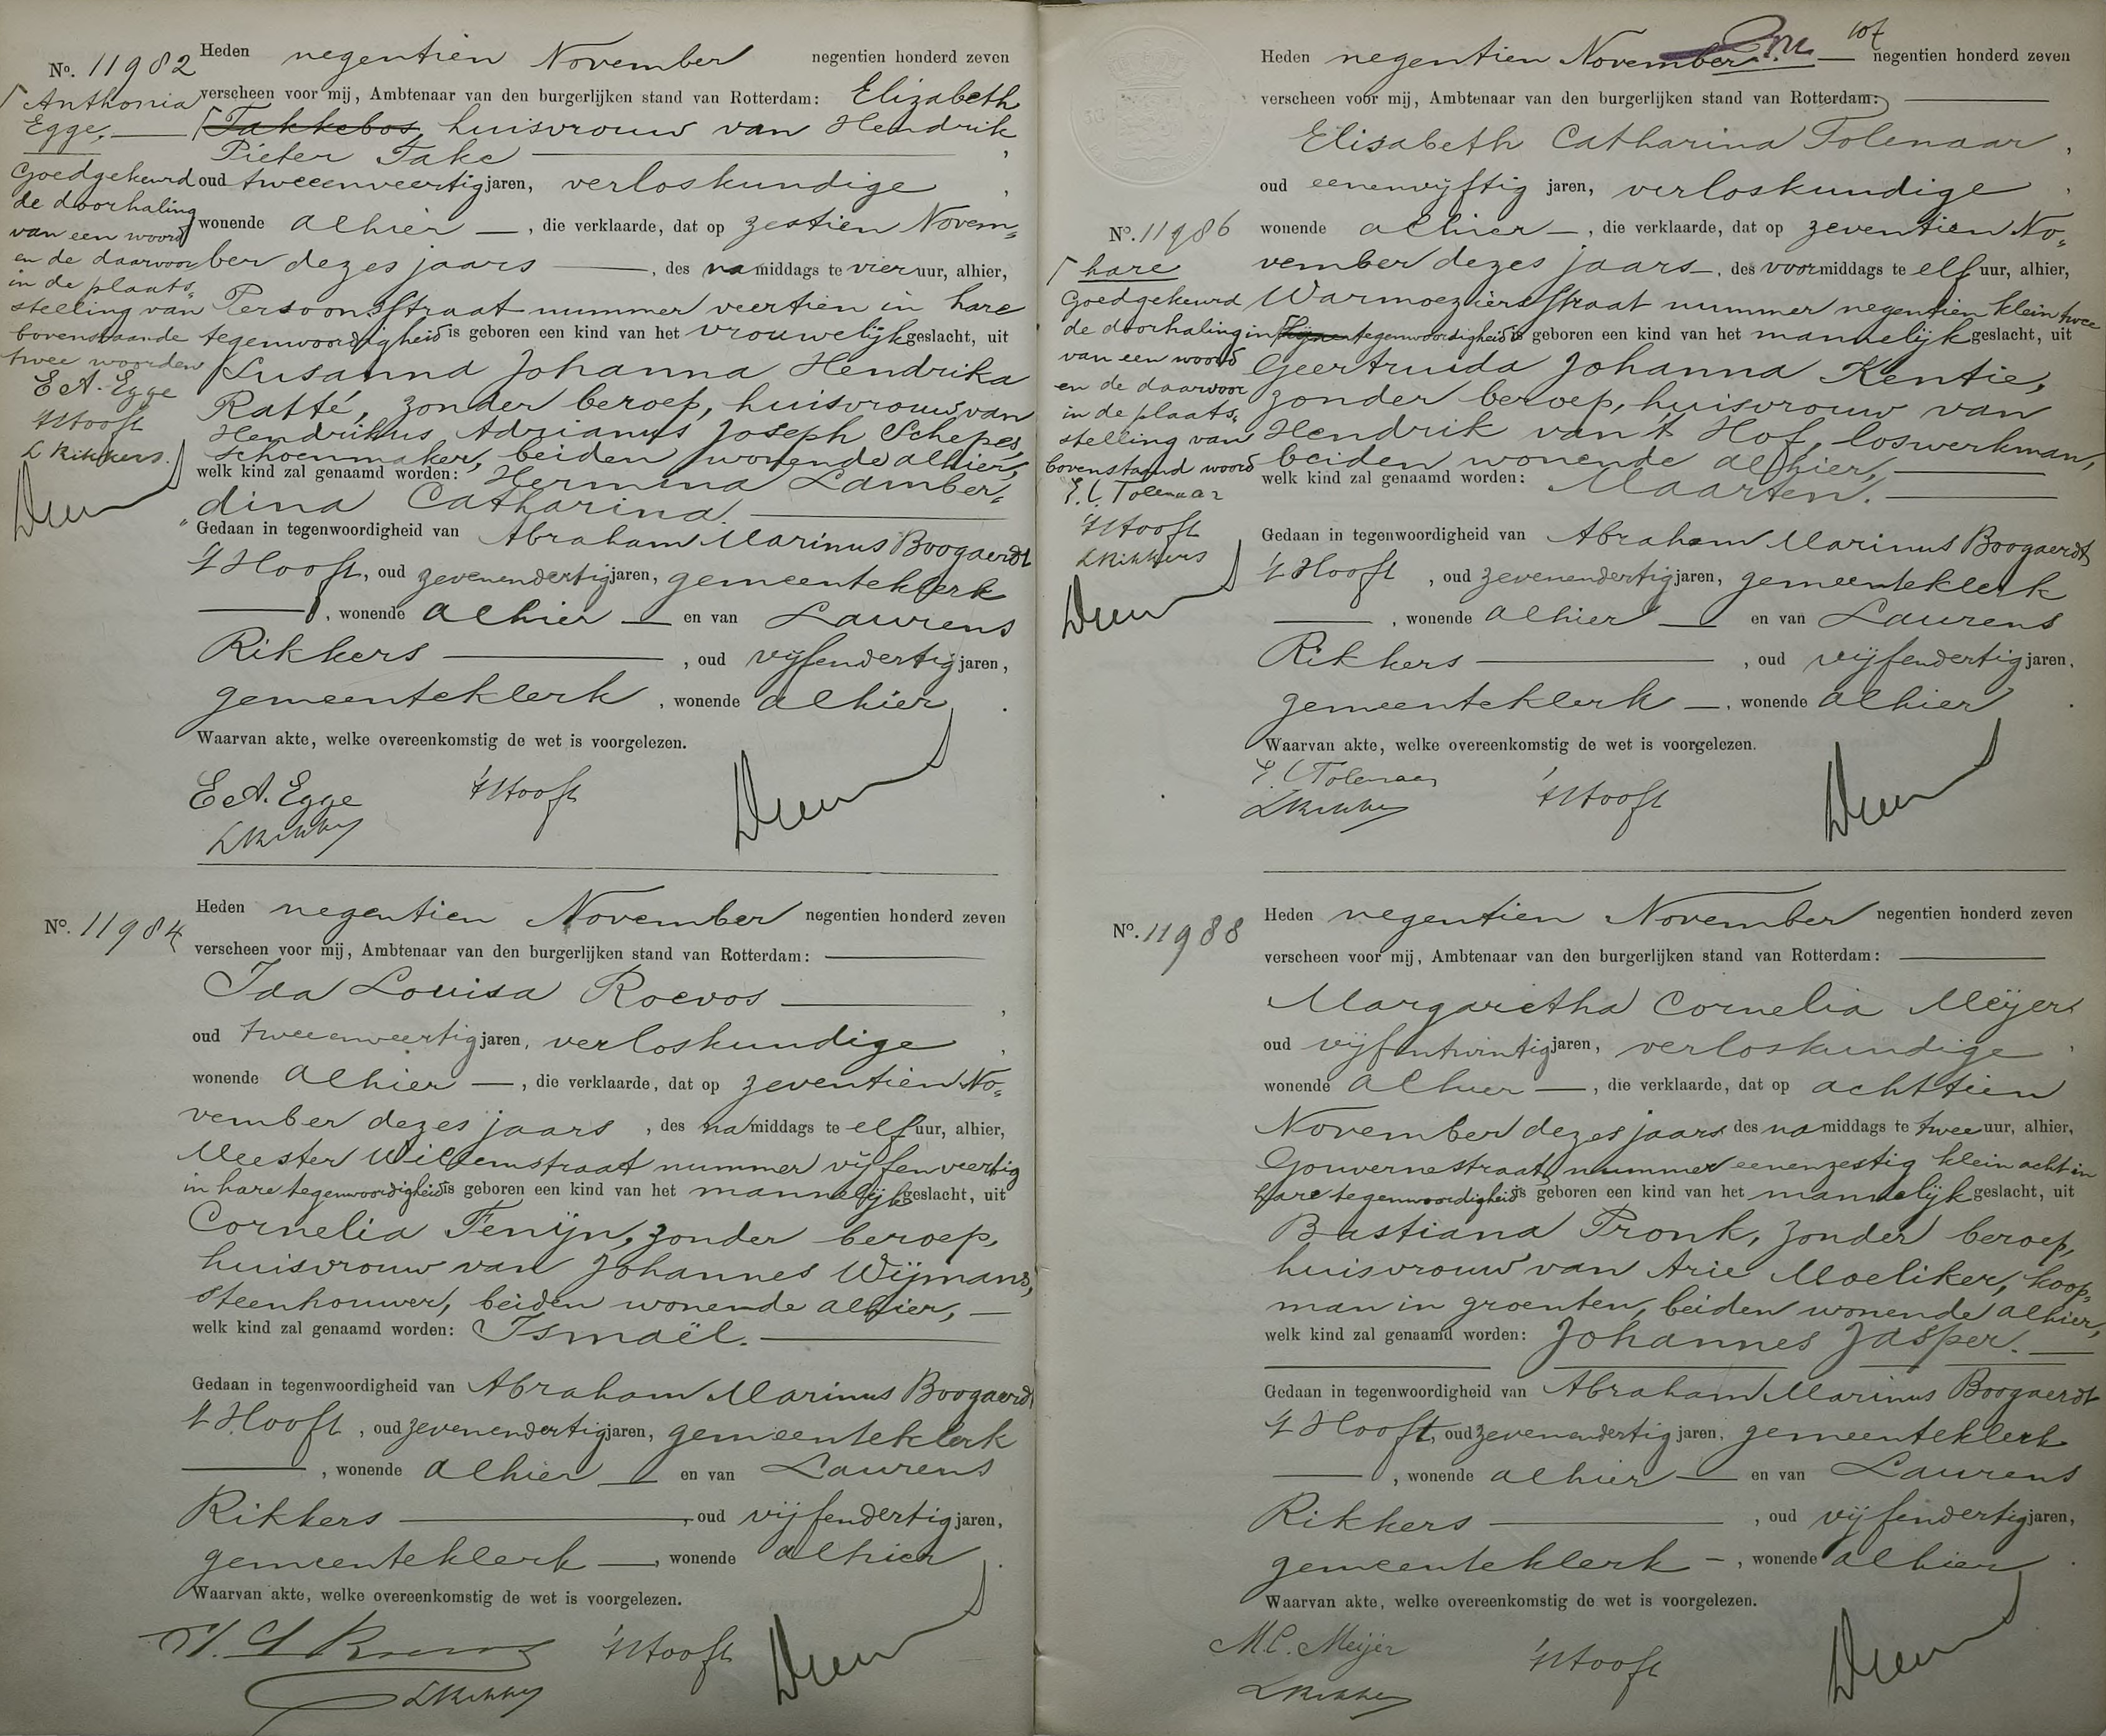 No. 11982
Heden negentien November negentien honderd zeven
Anthonia
Egge.
verscheen voor mij, Ambtenaar van den burgerlijken stand van Rotterdam: Elizabeth
Takkebos, huisvrouw van Hendrik
Pieter Take
oud tweeenveertig jaren, verloskundige
wonende alhier, die verklaarde, dat op zestien Novem=
ber dezes jaars, des namiddags te vier uur, alhier,
Persoonsstraat nummer veertien in hare
tegenwoordigheid is geboren een kind van het vrouwelijk geslacht, uit
Susanna Johanna Hendrika
Ratté, zonder beroep, huisvrouw van
Hendrikus Adrianus Joseph Schepes,
schoenmaker, beiden wonende alhier,
welk kind zal genaamd worden: Hermina Lamber=
dina Catharina.
Gedaan in tegenwoordigheid van Abraham Marinus Boogaerdt
't Hooft, oud zevenendertig jaren, gemeenteklerk
, wonende alhier en van Laurens
Rikkers, oud vijfendertig jaren,
gemeenteklerk, wonende alhier.
Waarvan akte, welke overeenkomstig de wet is voorgelezen.
E.A. Egge
't Hooft
L Rikkers
Goedgekeurd
de doorhaling
van een woord
en de daarvoor
in de plaats=
stelling van
bovenstaande
twee woorden
E.A. Egge
't Hooft
L Rikkers.
No. 11984
Heden negentien November negentien honderd zeven
verscheen voor mij, Ambtenaar van den burgerlijken stand van Rotterdam:
Ida Louisa Roevos
oud tweeenveertig jaren, verloskundige
wonende alhier, die verklaarde, dat op zeventien No=
vember dezes jaars, des namiddags te elf uur, alhier,
Meester Willemstraat nummer vijfenveertig
in hare tegenwoordigheid is geboren een kind van het mannelijk geslacht, uit
Cornelia Fenijn, zonder beroep,
huisvrouw van Johannes Wijmans,
steenhouwer, beiden wonende alhier,
welk kind zal genaamd worden: Ismaël.
Gedaan in tegenwoordigheid van Abraham Marinus Boogaerdt
't Hooft, oud zevenendertig jaren, gemeenteklerk
, wonende alhier en van Laurens
Rikkers, oud vijfendertig jaren,
gemeenteklerk, wonende alhier.
Waarvan akte, welke overeenkomstig de wet is voorgelezen.
't Hooft
L Rikkers
107
Heden negentien November negentien honderd zeven
verscheen voor mij, Ambtenaar van den burgerlijken stand van Rotterdam:
Elisabeth Catharina Tolenaar,
oud eenenvijftig jaren, verloskundige,
No. 11986
wonende alhier, die verklaarde, dat op zeventien No=
vember dezes jaars, des voormiddags te elf uur, alhier,
Warmoezierstraat nummer negentien klein twee
in tegenwoordigheid is geboren een kind van het mannelijk geslacht, uit
Geertruida Johanna Kentie,
zonder beroep, huisvrouw van
Hendrik van 't Hof, loswerkman,
beiden wonende alhier,
welk kind zal genaamd worden: Maarten.
Gedaan in tegenwoordigheid van Abraham Marinus Boogaerdt
't Hooft, oud zevenendertig jaren, gemeenteklerk
, wonende alhier en van Laurens
Rikkers, oud vijfendertig jaren,
gemeenteklerk, wonende alhier.
Waarvan akte, welke overeenkomstig de wet is voorgelezen.
E. C Tolenaar
't Hooft
L Rikkers
hare
Goedgekeurd
de doorhaling
van een woord
en de daarvoor
in de plaats=
stelling van
bovenstaand woord
E. C. Tolenaar
't Hooft
L Rikkers
No. 11988
Heden negentien November negentien honderd zeven
verscheen voor mij, Ambtenaar van den burgerlijken stand van Rotterdam:
Margaretha Cornelia Meijer
oud vijfentwintig jaren, verloskundige,
wonende alhier, die verklaarde, dat op achttien
November dezes jaars des namiddags te twee uur, alhier,
Gouvernestraat nummer eenenzestig klein acht in
hare tegenwoordigheid is geboren een kind van het mannelijk geslacht, uit
Bastiana Pronk, zonder beroep,
huisvrouw van Arie Moeliker, koop=
man in groenten, beiden wonende alhier,
welk kind zal genaamd worden: Johannes Jasper.
Gedaan in tegenwoordigheid van Abraham Marinus Boogaerdt
't Hooft, oud zevenendertig jaren, gemeenteklerk
, wonende alhier en van Laurens
Rikkers, oud vijfendertig jaren,
gemeenteklerk, wonende alhier.
Waarvan akte, welke overeenkomstig de wet is voorgelezen.
M.C. Meijer
't Hooft
L Rikkers